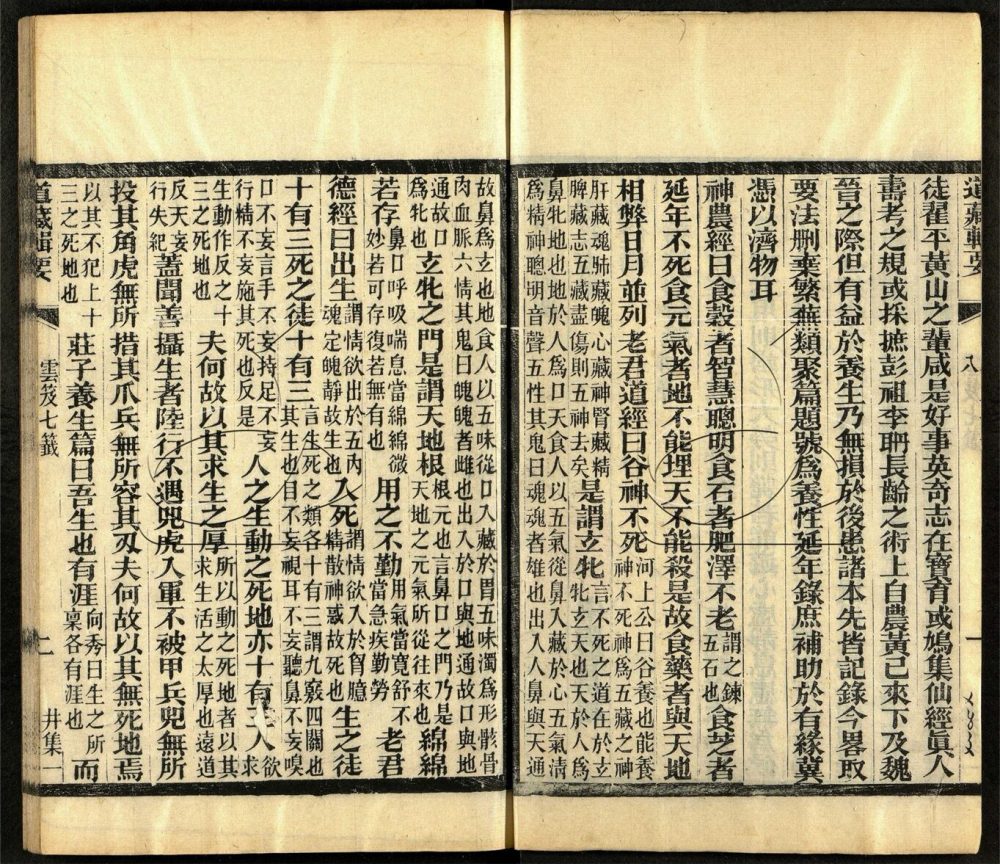 道藏輯要 八
徒翟平黃山之輩咸是好事英奇志在寶育或鳩集仙經眞人
壽考之規或採摭彭祖李聃長齡之術上自農黃已來下及魏
晉之際但有益於養生乃無損於後患諸本先皆記錄今畧取
要法删棄繁蕪類聚篇題號爲養性延年錄庶補助於有緣冀
憑以濟物耳
神農經曰食穀者智慧聰明食石者肥澤不老謂之鍊五石也食芝者
延年不死食元氣者地不能埋天不能殺是故食藥者與天地
相弊日月並列老君道經曰谷神不死河上公曰谷養也能養神不死神爲五藏之神
肝藏魂肺藏魄心藏神腎藏精脾藏志五藏盡傷則五神去矣是謂玄牝言不死之道在於玄牝玄天也天於人爲
鼻牝地也於人爲口天食人以五氣從鼻入藏於心五氣淸
爲精神聰明音聲五性其鬼曰魂魂者雄也出入人鼻與天通
故鼻爲玄也地食人以五味從口入藏於胃五味濁爲形骸骨
肉血脈六情其鬼曰魄魄者雌也出入於口與地通故口與地
通故口爲牝也玄牝之門是謂天地根根元也言鼻口之門乃是天地之元氣所從往來也綿綿
若存鼻口呼吸喘息當綿綿微妙若可存復若無有也用之不勤用氣當寬舒不當急疾勤勞老君
德經曰出生謂情欲出於五內魂定魄靜故生也入死謂情欲入於胷臆精散神惑故死也生之徒
十有三死之徒十有三言生死之類各十有三謂九竅四關也其生也目不妄視耳不妄聽鼻不妄嗅
口不妄言手不妄持足不妄行情不妄施其死也反是人之生動之死地亦十有三人欲求
生動作反之十三之死地也夫何故以其求生之厚所以動之死地者以其求生活之太厚也遠道
反天妄行失紀蓋聞善攝生者陸行不遇兕虎入軍不被甲兵兕無所
投其角虎無所措其爪兵無所容其刃夫何故以其無死地焉
以其不犯上十三之死地也莊子養生篇曰吾生也有涯向秀曰生之所稟各有涯也而
道藏輯要 雲笈七籤 井集一